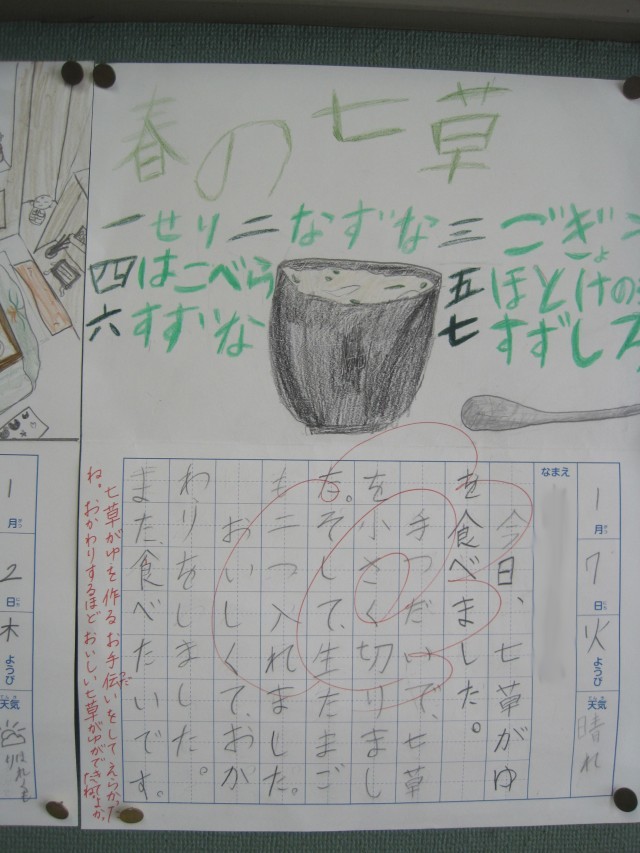 春の七草
一せり二なずな三ごぎょ
四はこべら 五ほとけの
六すずな 七すずし
1月7日火ようび天気晴れ
なまえ
今日、七草がゆ
を食べました。
手つだいで、七草
を小さく切りまし
た。そして、生たまご
も二つ入れました。
おいしくて、おか
わりをしました。
また食べたいです。
七草がゆを作るお手伝いをしてえらかった
ね。おかわりするほどおいしい七草がゆができてよかったね。
1月2日木ようび天気